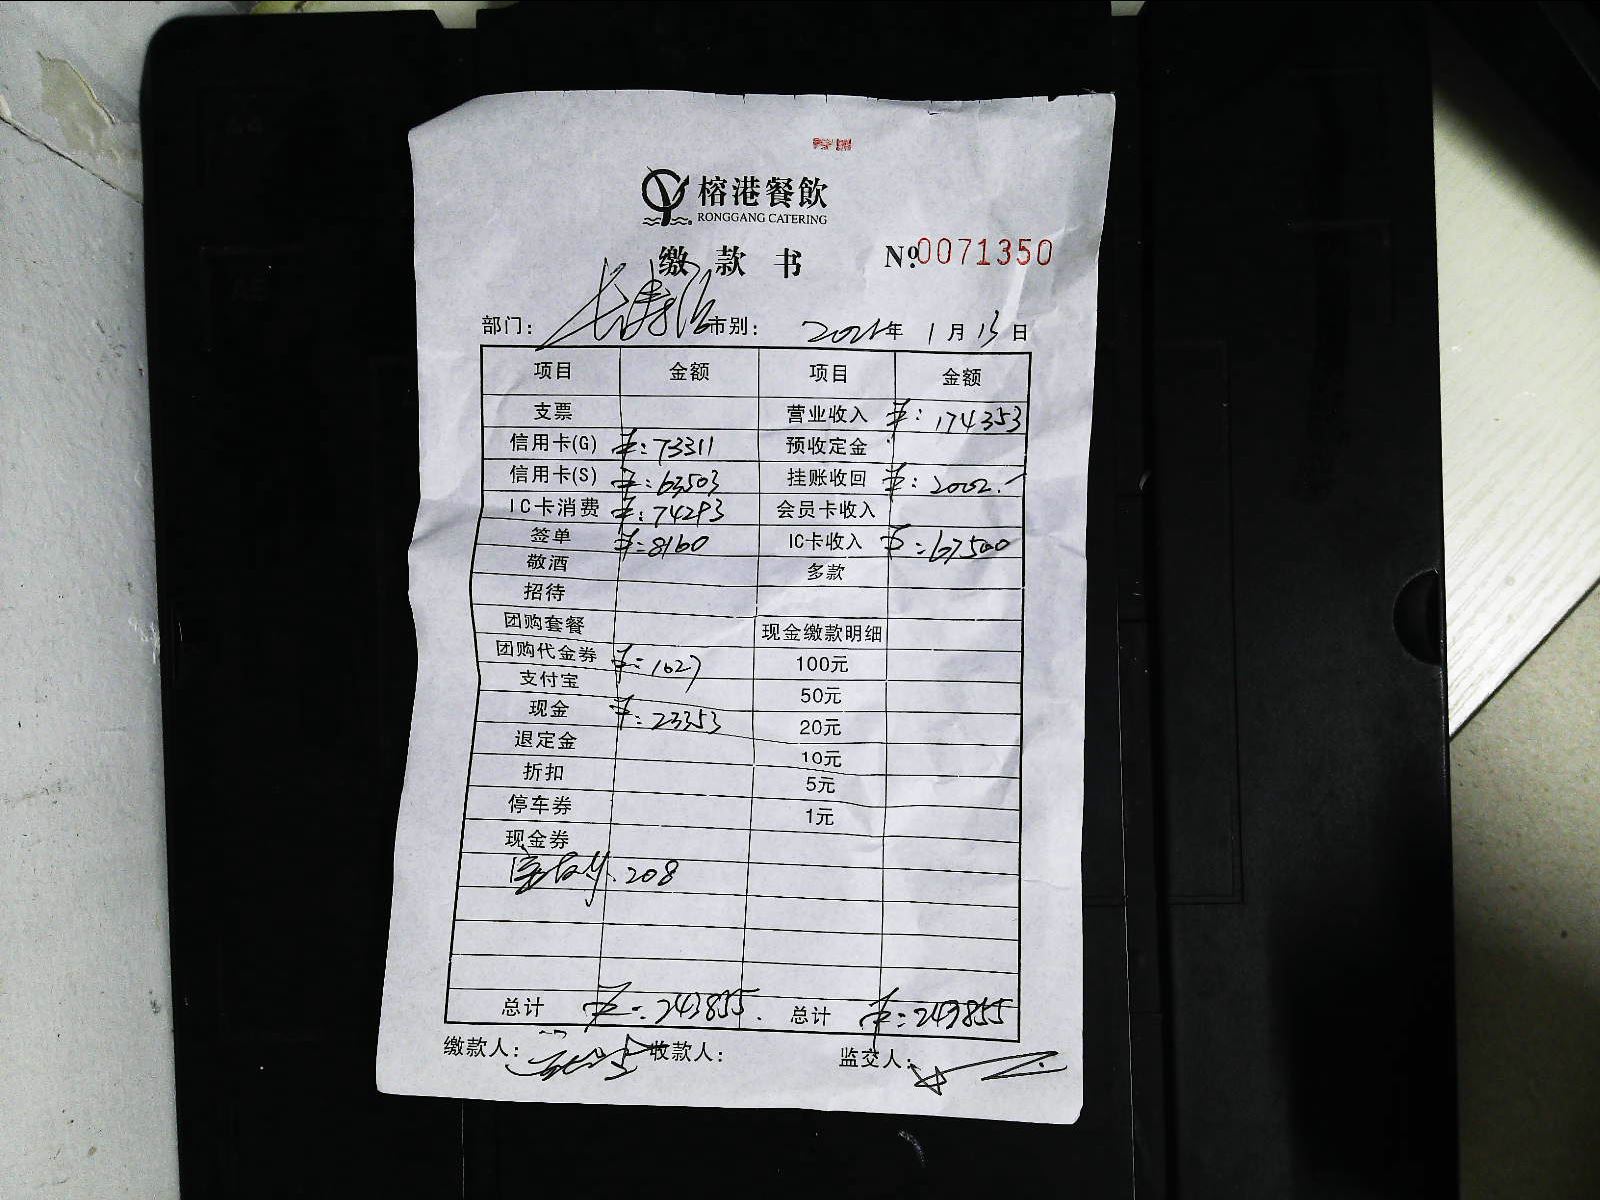 榕港餐飲
RONGGANG CATERING
缴款书 No.0071350
部门： 长寿 市别： 2021年 1月 13日
项目 金额 项目 金额
支票 营业收入 ¥：174353
信用卡(G) ¥：73311 预收定金
信用卡(S) ¥：63503 挂账收回 ¥：2002.-
IC卡消费 ¥：74293 会员卡收入
签单 ¥：8160 IC卡收入 ¥：67500
敬酒 多款
招待
团购套餐 现金缴款明细
团购代金券 ¥：1027 100元
支付宝 50元
现金 ¥：23353 20元
退定金 10元
折扣 5元
停车券 1元
现金券
208
总计 ¥：243855. 总计 ¥：243855
缴款人： 收款人： 监交人：